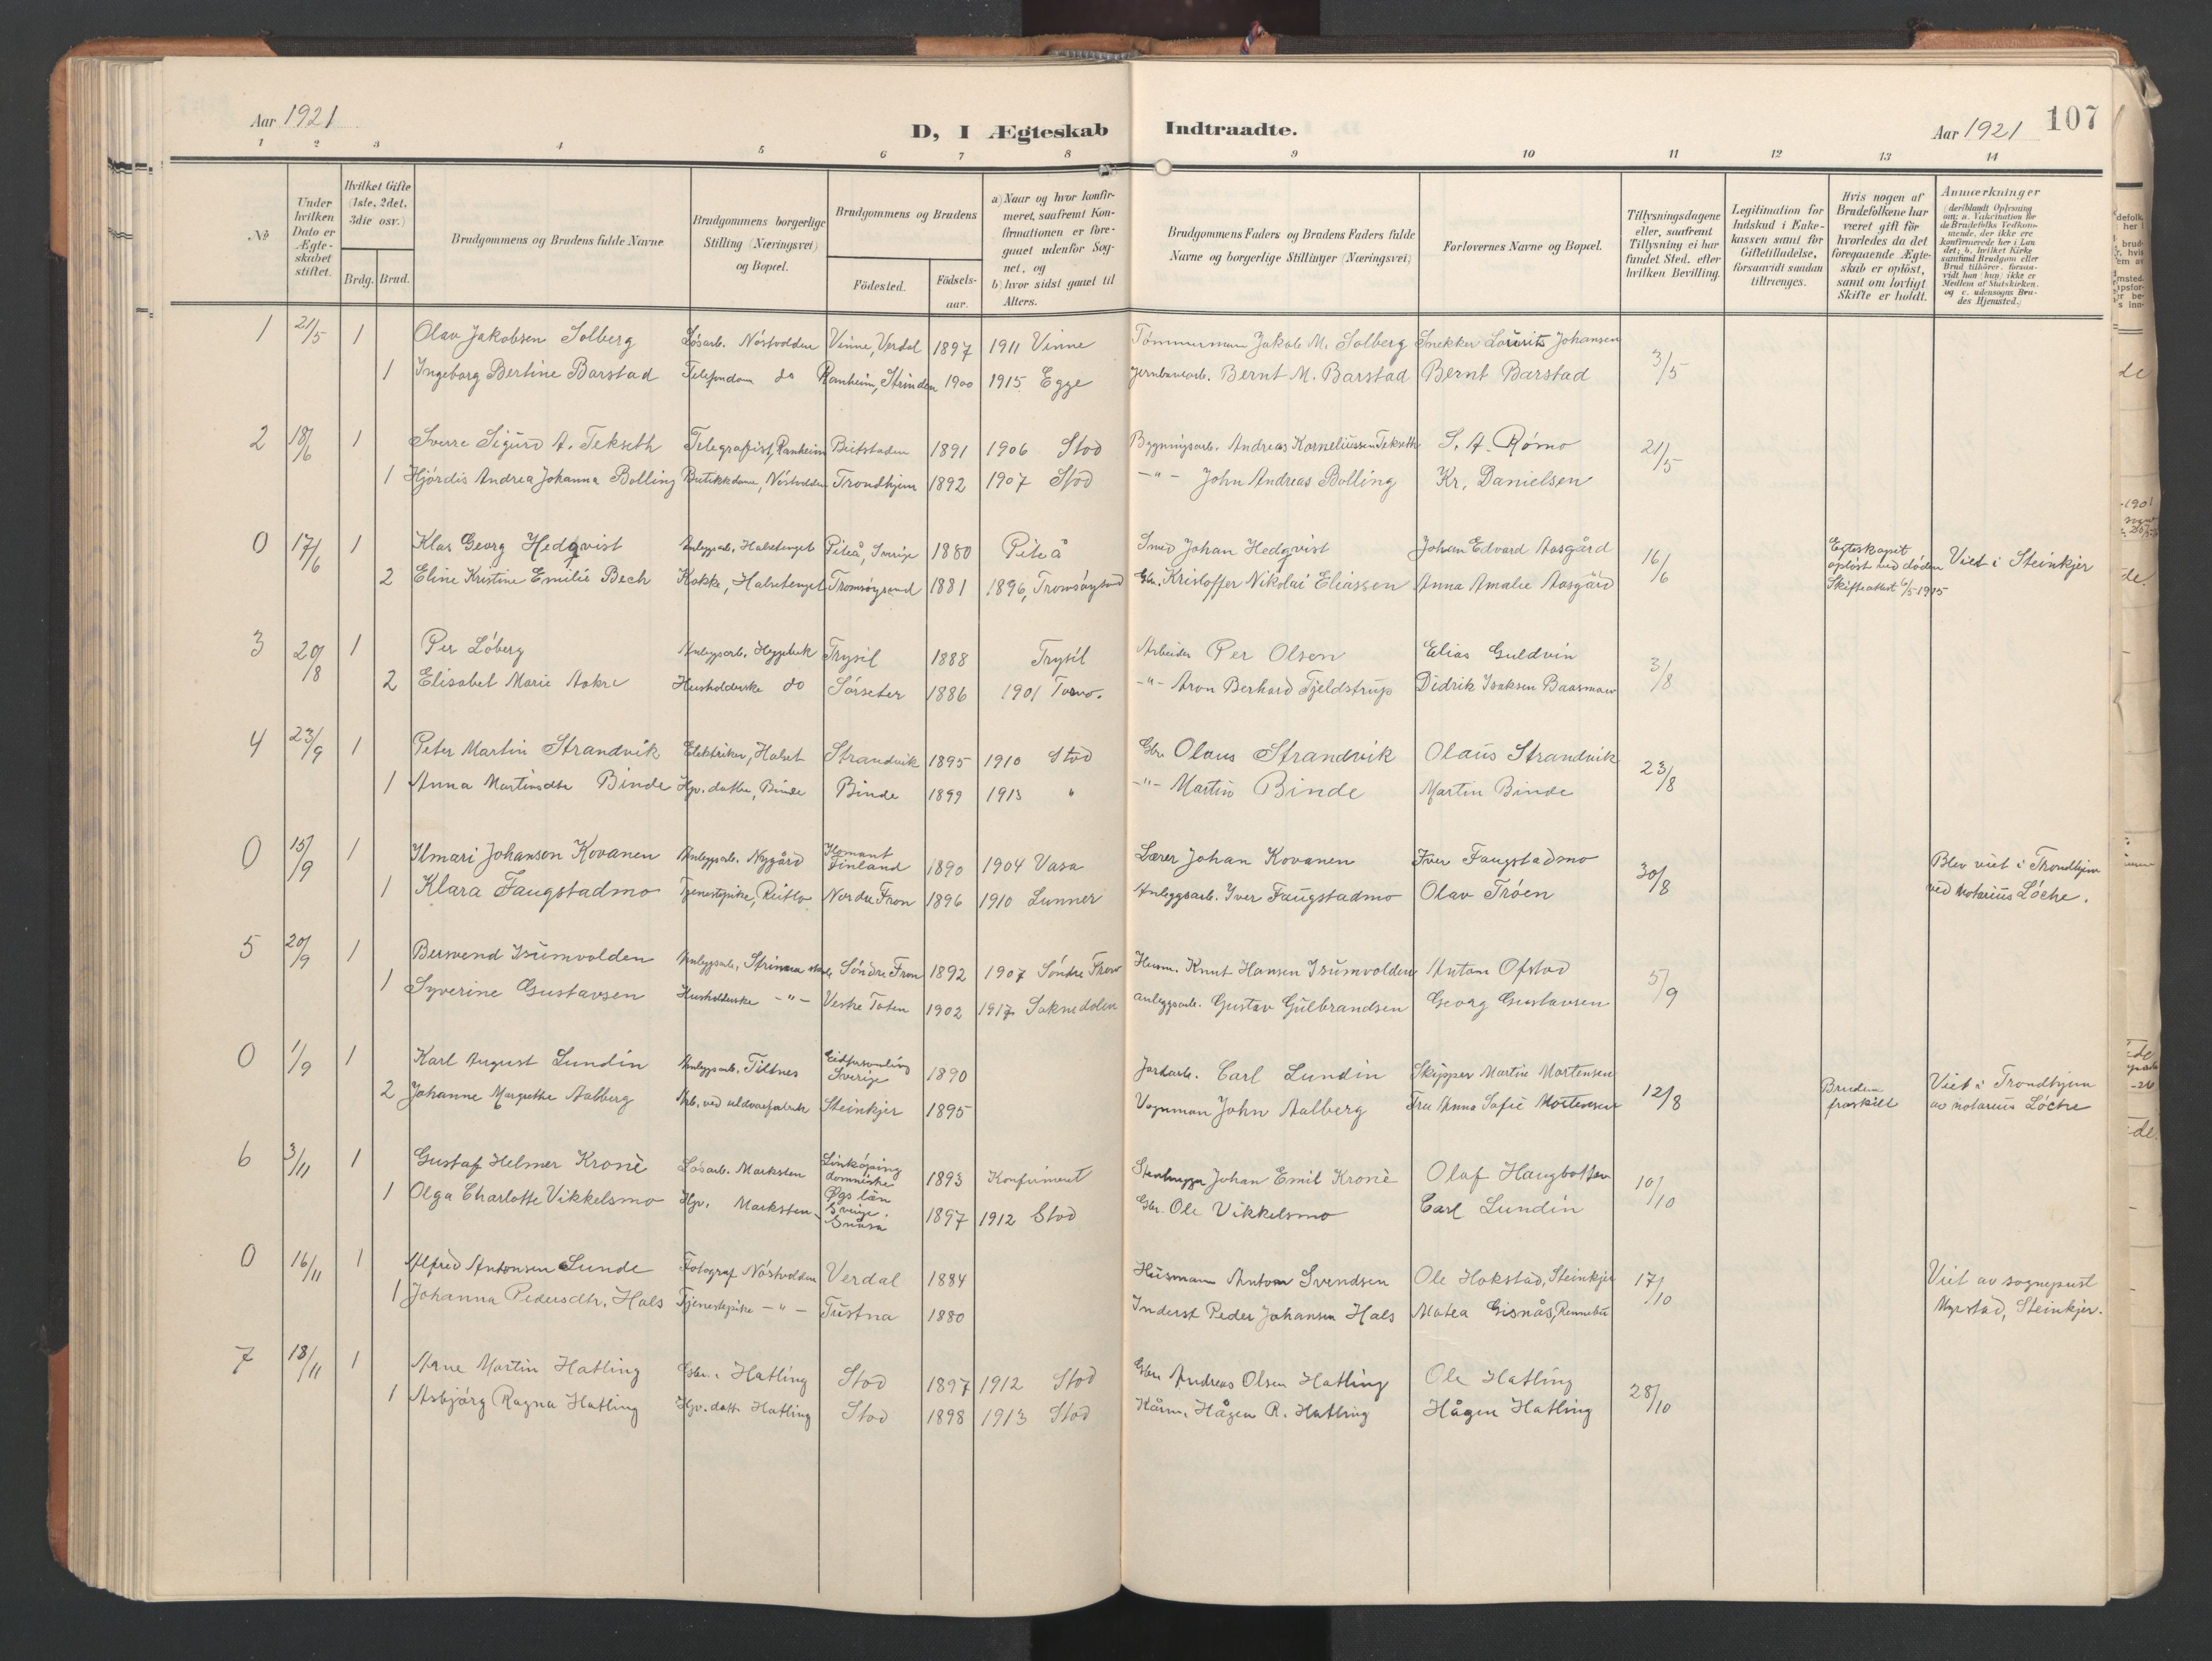 Aar 1921
D, I Ægteskab Indtraadte.
Aar 1921 107
1 2 3 4 5 6 7 8 9 10 11 12 13 14
No
Under hvilken Dato er Ægteskabet stiftet.
Hvilket Gifte (1ste, 2det, 3die osv.)
Brdg. Brud.
Brudgommens og Brudens fulde Navne
Brudgommens borgerlige Stilling (Næringsvei) og Bopæl.
Brudgommens og Brudens
Fødested. Fødsels-aar.
a) Naar og hvor konfirmeret, saafremt Konfirmationen er foregaaet udenfor Sognet, og b) hvor sidst gaaet til Alters.
Brudgommens Faders og Brudens Faders fulde Navne og borgerlige Stillinger (Næringsvei)
Forlovernes Navne og Bopæl.
Tillysningsdagene eller, saafremt Tillysning ei har fundet Sted, efter hvilken Bevilling.
Legitimation for Indskud i Enkekassen samt for Giftetilladelse, forsaavidt saadan tiltrænges.
Hvis nogen af Brudefolkene har været gift før hvorledes da det foregaaende Ægteskab er opløst, samt om lovligt Skifte er holdt.
Anmærkninger (deriblandt Oplysning om: a. Vakcination for de Brudefolks Vedkommende, der ikke ere konfirmerede her i Landet; b. hvilket Kirkesamfund Brudgom eller Brud tilhører, forsaavidt han (hun) ikke er Medlem af Statskirken, og c. udensogns Brudes Hjemsted.)
1 21/5 1 Olav Jakobsen Solberg Løsarb. Nøstvolden Vinne, Verdal 1897 1911 Vinne Tømmermann Jakob M. Solberg Snekker Lourits Johansen 3/5
1 Ingeborg Bertine Barstad Telefondam do Ranheim, Strinden 1900 1915 Egge Jernbanearb. Bernt M. Barstad Bernt Barstad
2 18/6 1 Sverre Sigurd A. Tekseth Telegrafist, Ranheim Beitstaden 1891 1906 Stod Bygningsarb. Andreas Korneliussen Tekseth S. A. Rømo 21/5
1 Hjørdis Andrea Johanna Bolling Butikkdame, Nøstvolden Trondhjem 1892 1907 Stod -"- John Andreas Bolling Kr. Danielsen
0 17/6 1 Klas Georg Hedqvist Anleggsarb. Halsetenget Piteå, Sverige 1880 Piteå Smed Johan Hedqvist Johan Edvard Aasgård 16/6 Egteskapet opløst ved døden Skifteattest 6/5-1915 Viet i Steinkjer
2 Eline Kristine Emilie Bech Kokke, Halsetenget Tromsøysund 1881 1896, Tromsøysund Gbr. Kristoffer Nikolai Eliassen Anna Amalie Aasgård
3 20/8 1 Per Løberg Anleggsarb. Heggebak Trysil 1888 Trysil Arbeider Per Olsen Elias Guldvin 3/8
2 Elisabet Marie Aakre Husholderske do Sørseter 1886 1901 -"- Aron Berhard Fjeldstrup Didrik Isaksen Baasmoen
4 23/9 1 Peter Martin Strandvik Elektriker, Halset Strandvik 1895 1910 Stod Gbr. Olaus Strandvik Olaus Strandvik 23/8
1 Anna Martinsdtr Binde Hjv. datter, Binde Binde 1899 1913 " -"- Martin Binde Martin Binde
0 15/9 1 Ilmari Johanson Kovanen Anleggsarb. Nygård Ilomant Finland 1890 1904 Vasa Lærer Johan Kovanen Iver Faugstadmo 30/8 Blev viet i Trondhjem ved Notarius Løche.
1 Klara Faugstadmo Tjenestpike, Reitlo Nordre Fron 1896 1910 Lunner Anleggsarb. Iver Faugstadmo Olav Trøen
5 20/9 1 Bersvend Isumvolden Anleggsarb. Strinna Søndre Fron 1892 1907 Søndre Fron Husm. Knut Hansen Isumvolden Anton Ofstad 5/9
1 Syverine Gustavsen Husholderske -"- Vestre Toten 1902 1917 Soknedalen Anleggsarb. Gustav Gulbrandsen Georg Gustavsen
0 1/9 1 Karl August Lundin Anleggsarb. Tiltnes Sverige 1890 Jordarb. Carl Lundin Skipper Martin Mortensen 12/8 Bruden fraskilt Viet i Trondhjem av notarius Løche
2 Johanne Margrethe Aalberg Arb. ved uldvarefabrik Steinkjer 1895 Vognman John Aalberg Fru Anna Sofie Mortensen
6 3/11 1 Gustaf Helmer Kronè Løsarb. Marksten Linköping domneske Øgs län Sverige. 1893 Konfirmert Stenhugger Johan Emil Kronè Olaf Haugbotten 10/10
1 Olga Charlotte Vikkelsmo Hjv. Marksten Snåsa 1897 1912 Stod Gbr. Ole Vikkelsmo Carl Lundin
0 16/11 1 Alfred Antonsen Lunde Fotograf Nøstvolden Verdal 1884 Husmann Anton Svendsen Ole Hokstad, Steinkjer 17/10 Viet av sogneprest Myrstad, Steinkjer.
1 Johanna Pedersdtr. Hals Tjenestepike -"- Tustna 1880 Inderst Peder Johansen Hals Matea Gisnås, Rennebu
7 18/11 1 Arne Martin Hatling Gbr. Hatling Stod 1897 1912 Stod Gbr. Andreas Olsen Hatling Ole Hatling 28/10
1 Asbjørg Ragna Hatling Hjv. datt. Hatling Stod 1898 1913 Stod Kårm. Hågen R. Hatling Hågen Hatling